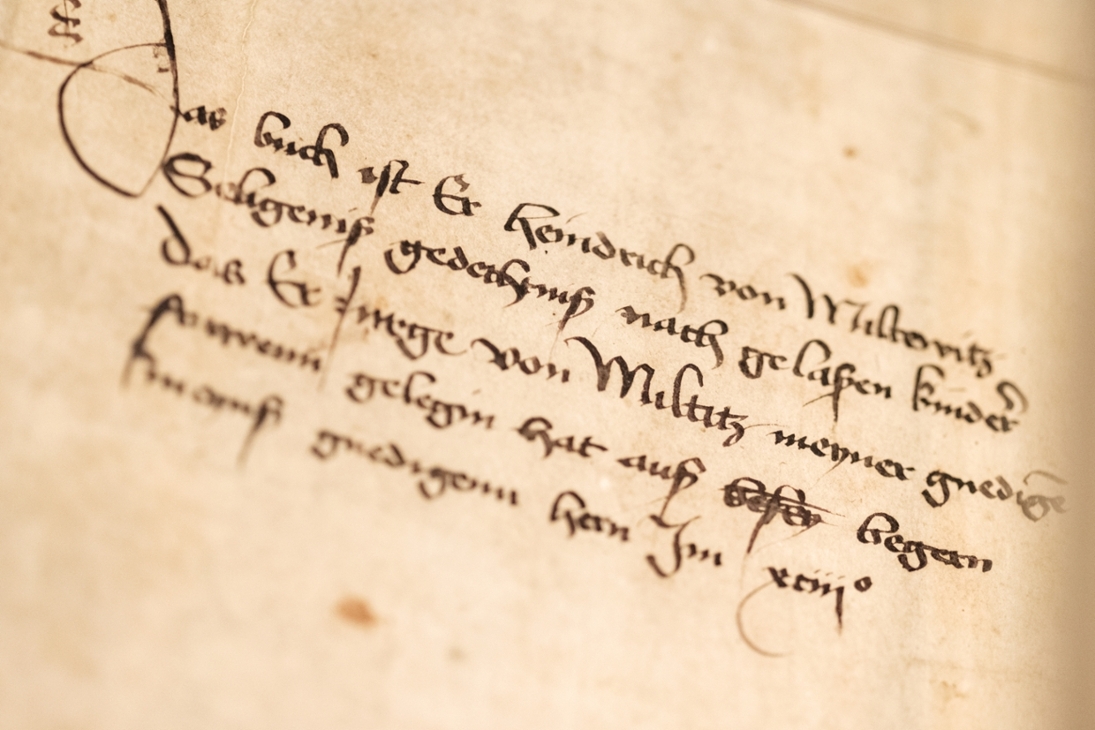 Das buch ist Er heindrich von Miltewitz
Seligeniß gedechtniß nach gelaßen kinder
das Er von Miltitz meyner gnedigē
frawenn gelegin hat auß begern
meynß gnedigenn hern Im xciiijº